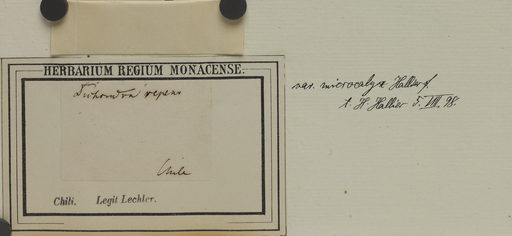 HERBARIUM REGIUM MONACENSE.
Dichondra repens
Chile
Chili. Legit Lechler.
var. microcalyx Hallier f.
t. H. Hallier 5. VIII. 98.